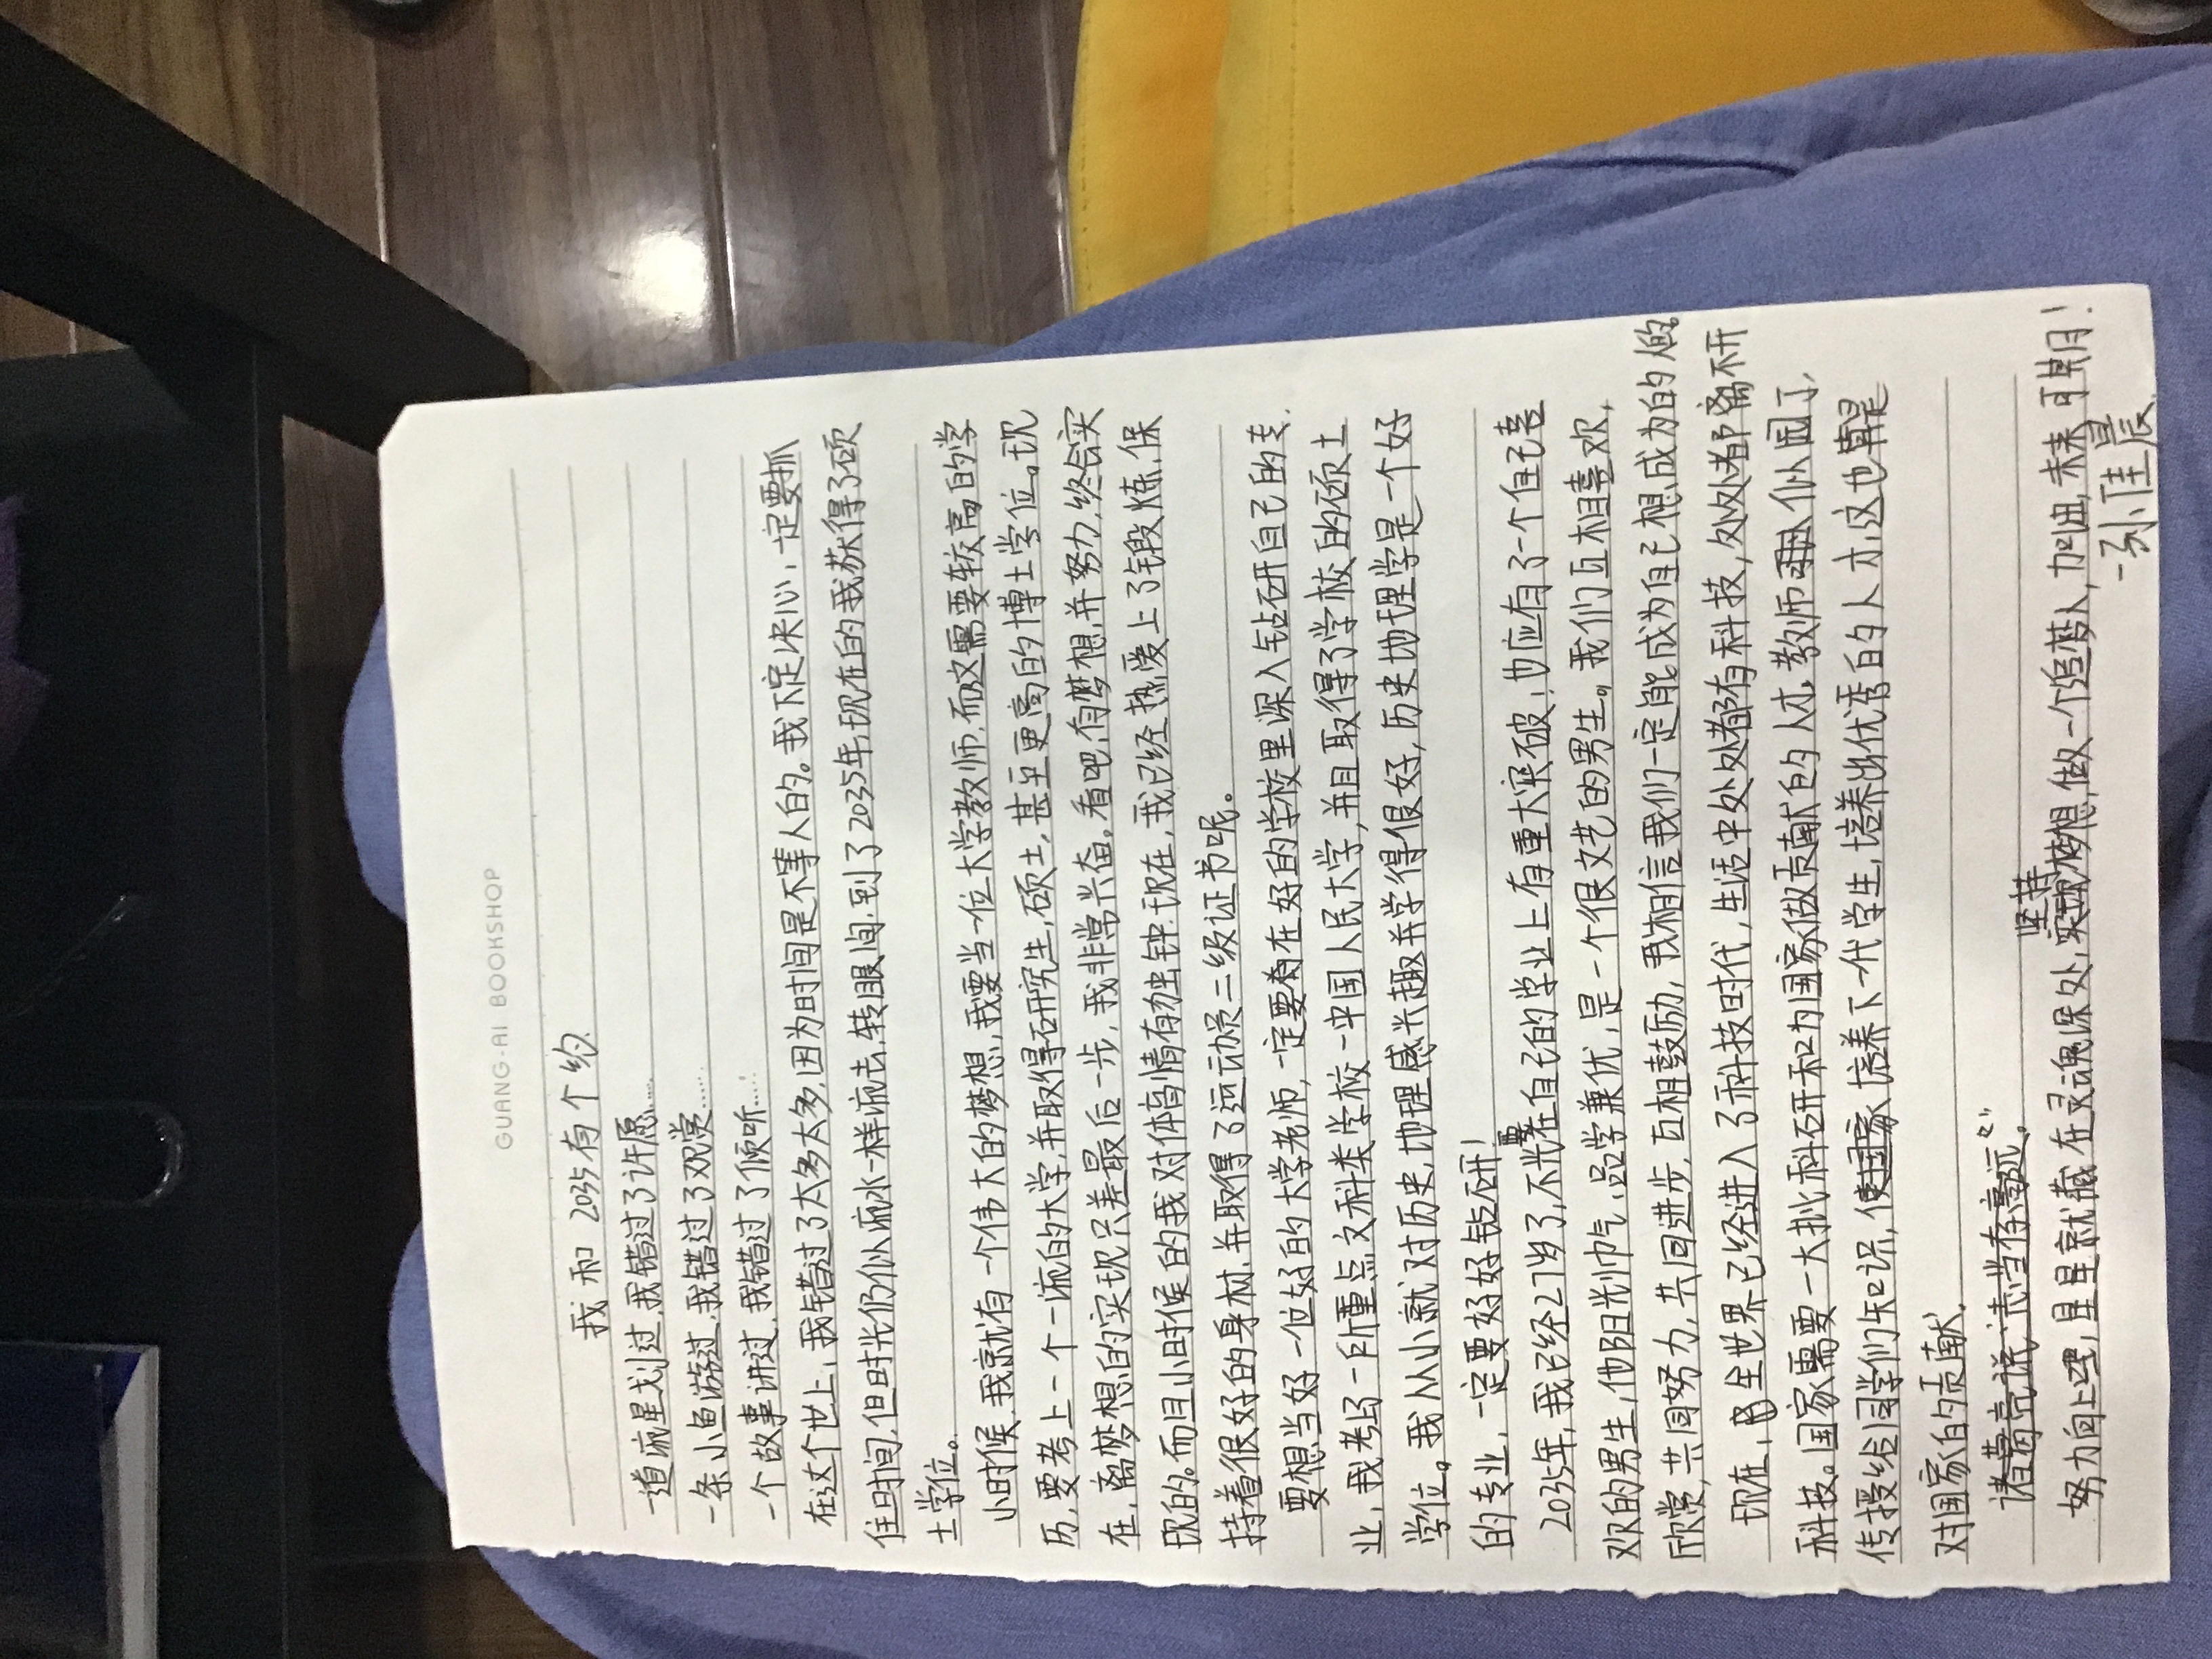 GUANG·AI BOOKSHOP
我和2035有个约
一道流星划过,我错过了许愿……
一条小鱼游过,我错过了观赏……
一个故事讲过,我错过了倾听……
在这个世上,我错过了太多太多,因为时间是不等人的。我下定决心,一定要抓
住时间,但时光仍似流水一样流去,转眼间,到了2035年,现在的我获得了硕
士学位。
小时候,我就有一个伟大的梦想,我要当一位大学教师,而这需要较高的学
历,要考上一个一流的大学,并取得研究生,硕士,甚至更高的博士学位。现
在,离梦想的实现只差最后一步,我非常兴奋。看吧,有梦想,并努力,终会实
现的。而且小时候的我对体育情有独钟,现在,我已经热爱上了锻炼,保
持着很好的身材,并取得了运动员二级证书呢。
要想当好一位好的大学老师,一定要在好的学校里深入钻研自己的专
业,我考了一所重点文科类学校—中国人民大学,并且取得了学校的硕士
学位。我从小就对历史,地理感兴趣并学得很好,历史地理学是一个好
的专业,一定要好好钻研!
2035年,我已经27岁了,不光要在自己的学业上有重大突破,也应有了一个自己喜
欢的男生,他阳光帅气,品学兼优,是一个很文艺的男生。我们互相喜欢,
欣赏,共同努力,共同进步,互相鼓励,我相信我们一定能成为自己想成为的人的。
现在,全世界已经进入了科技时代,生活中处处都有科技,处处都离不开
科技。国家需要一大批科研和为国家做贡献的人才,教师似园丁,
传授给同学们知识,使国家培养下一代学生,培养出优秀的人才,这也算是
对国家的贡献。
诸葛亮说:“志当存高远”。
努力向上吧,星星就藏在灵魂深处,坚持梦想,做一个追梦人,加油,未来可期!
-孙佳晨